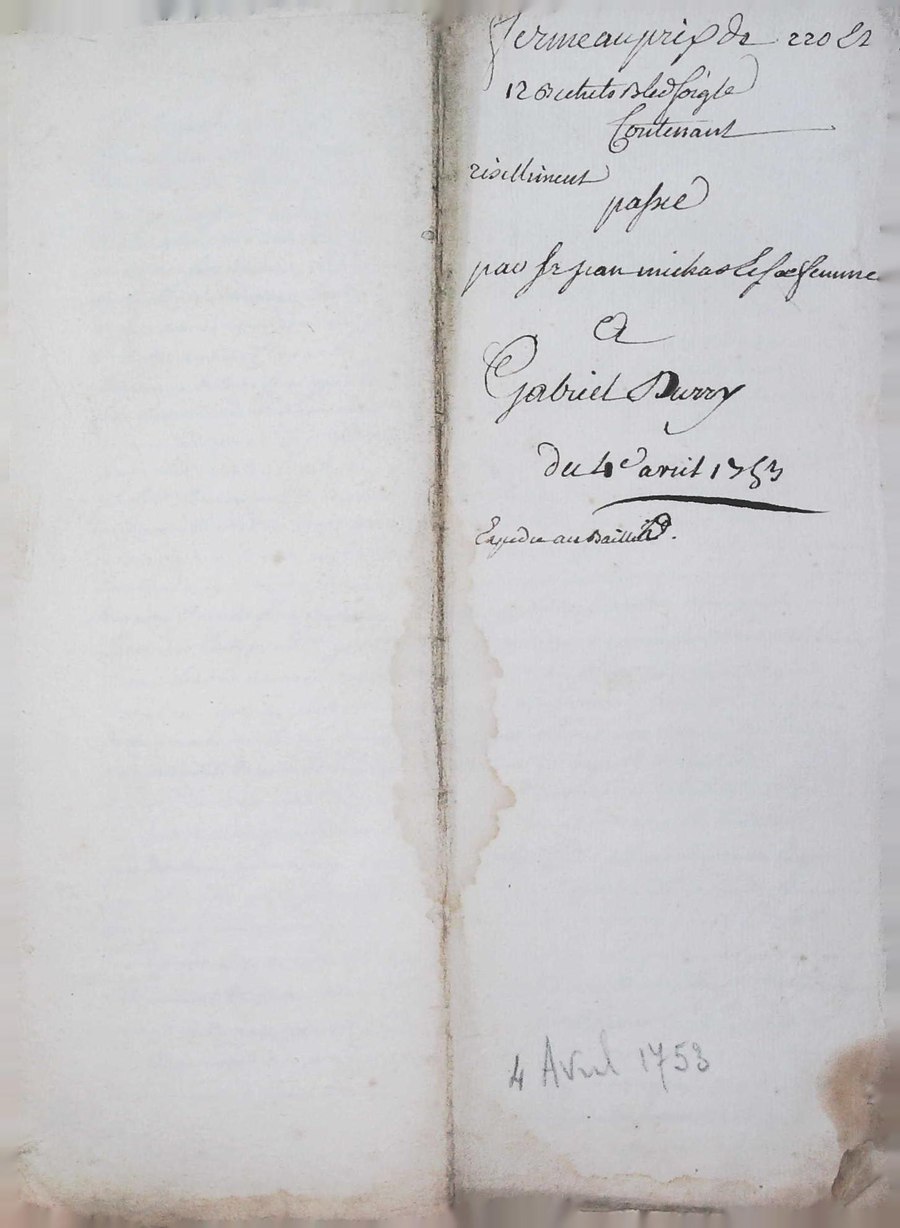 ferme au prix de 220 et
12 Bichets Bled soigle
Contenant
résilliment
passé
par sr jean michas et sa femme
A
Gabriel Burry
du 4e avril 1753
Expedié au Bailleur.
4 Avril 1753